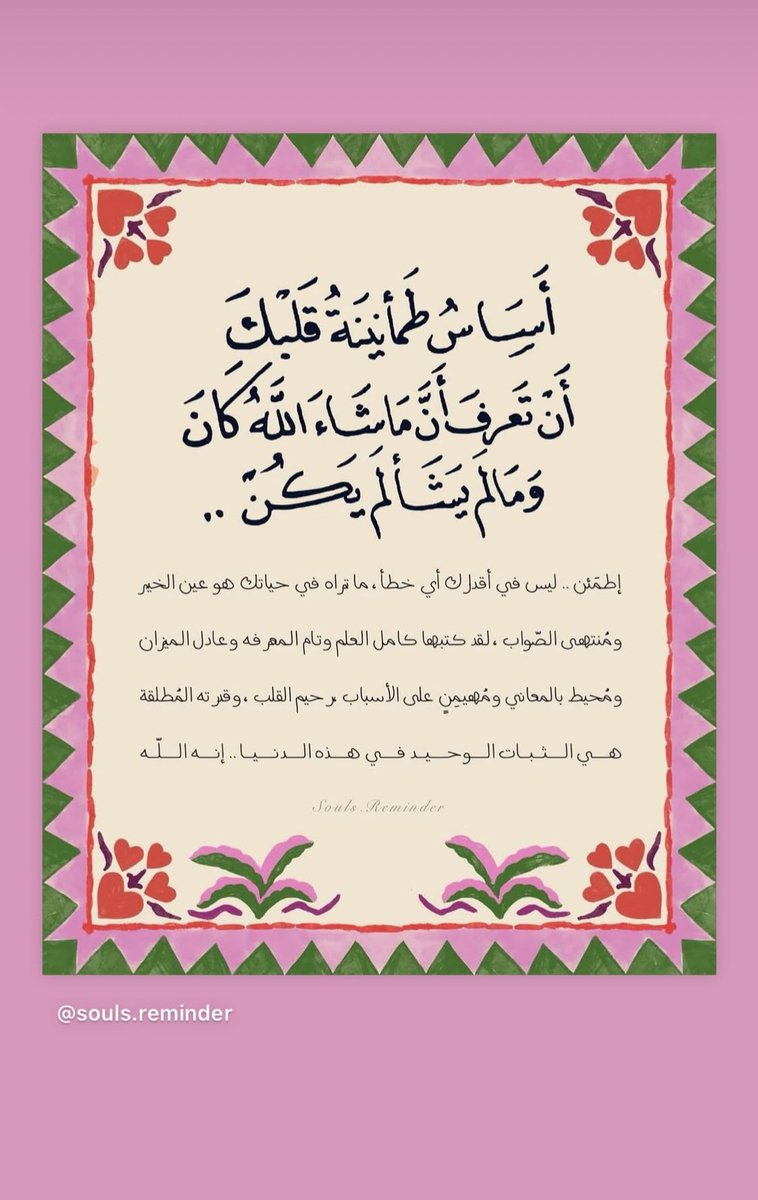 أَسَاسُ طَمأنينَةُ قَلبْكَ
أَنْ تَعرفَ أَنَّ مَا شَاءَ اللَّهُ كَانَ
وَمَا لَمَ يَشَأ لَمَ يَكُنْ ..
إطمَئن .. ليس في أقدارك أي خطأ ، ما تراه في حياتك هو عين الخير
ومُنتهى الصّواب ، لقد كتبها كامل العلم وتام المعرفه وعادل الميزان
ومُحيط بالمعاني ومُهيمِنٍ على الأسباب رحيم القلب ، وقدرته المُطلقة
هـي الـثـبات الـوحـيـد فـي هـذه الـدنـيـا .. إنـه الـلّـه
Souls.Reminder
@souls.reminder